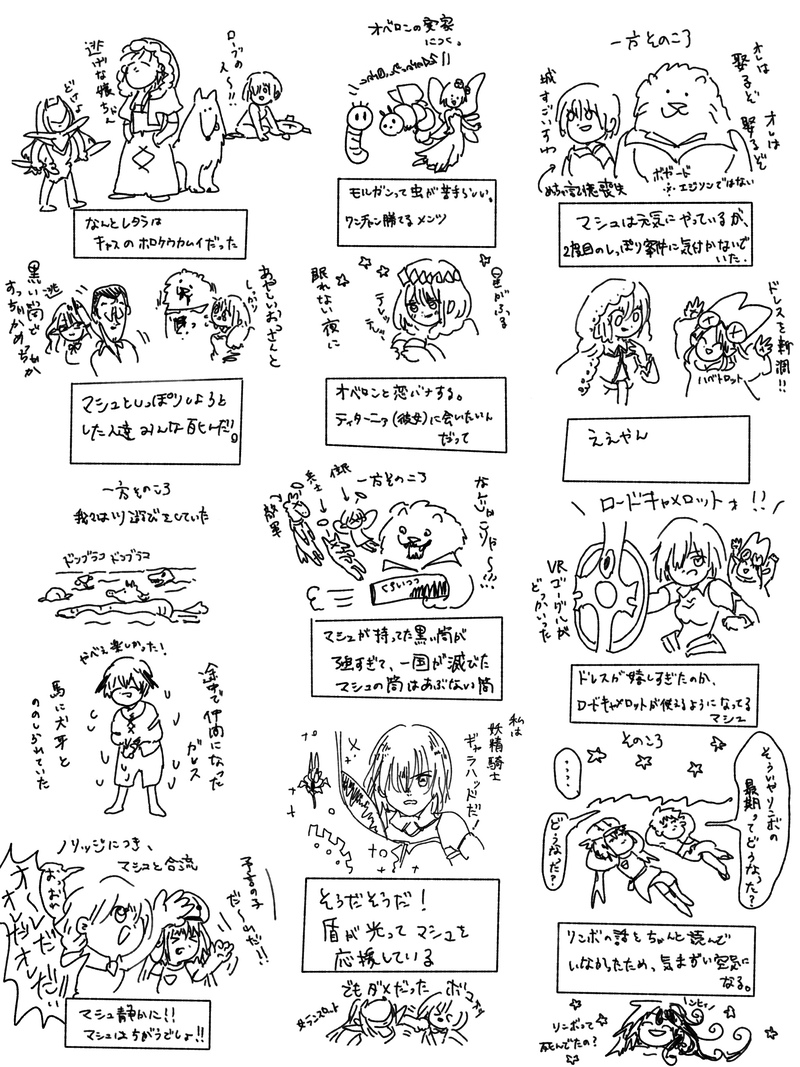 一方そのころ
オレは
娶るぞ
オレは
娶るぞ
城すごいすわ
めちゃ記憶喪失
ボガード
※エジソンではない
マシュは元気にやっているが、
2度目のしっぽり案件に気付かないで
いた。
ドレスを新調!!
ハベトロット
ええやん
ロードキャメロットォ!!
VR
ゴーグルが
どっかいった
ドレスが嬉しすぎたのか、
ロードキャメロットが使えるようになってる
マシュ
そのころ
そういやリンボの
最期ってどうなった?
・・・・
どうなった?
リンボの話をちゃんと読んで
いなかったため、気まずい空気に
なる。
リンボって
死んでたの?
オベロンの実家
につく。
モルガンって虫が苦手らしい。
ワンチャン勝てるメンツ
眠れない夜に
オベロンと恋バナする。
ティターニア(彼女)に会いたいん
だって
一方そのころ
住民
兵士
敵軍
なんじゃこりゃ〜!!?
くろいつつ
マシュが持ってた黒い筒が
強すぎて、一国が滅びた
マシュの筒はあぶない筒
私は
妖精騎士
ギャラハッドだ!
そうだそうだ!
盾が光ってマシュを
応援している
でもダメだった
ロープの
人〜!!
逃げな嬢ちゃん
どけよ
なんとレタラは
キャスのホロケウカムイだった
あやしいおっさんと
しっぽり
黒い筒で
すっちゃかめっちゃか
逃
マシュとしっぽりしようと
した人達みんな死んだ。
一方そのころ
我々は川遊びをしていた
ドンブラコ ドンブラコ
やべえ楽しかった!
途中で仲間になった
ガレス
馬に犬耳と
ののしられていた
ノリッジにつき、
マシュと合流
予言の子
だ〜い!!
おっおおお
オレだオレだ!!
マシュ静かに!!
マシュはちがうでしょ!!